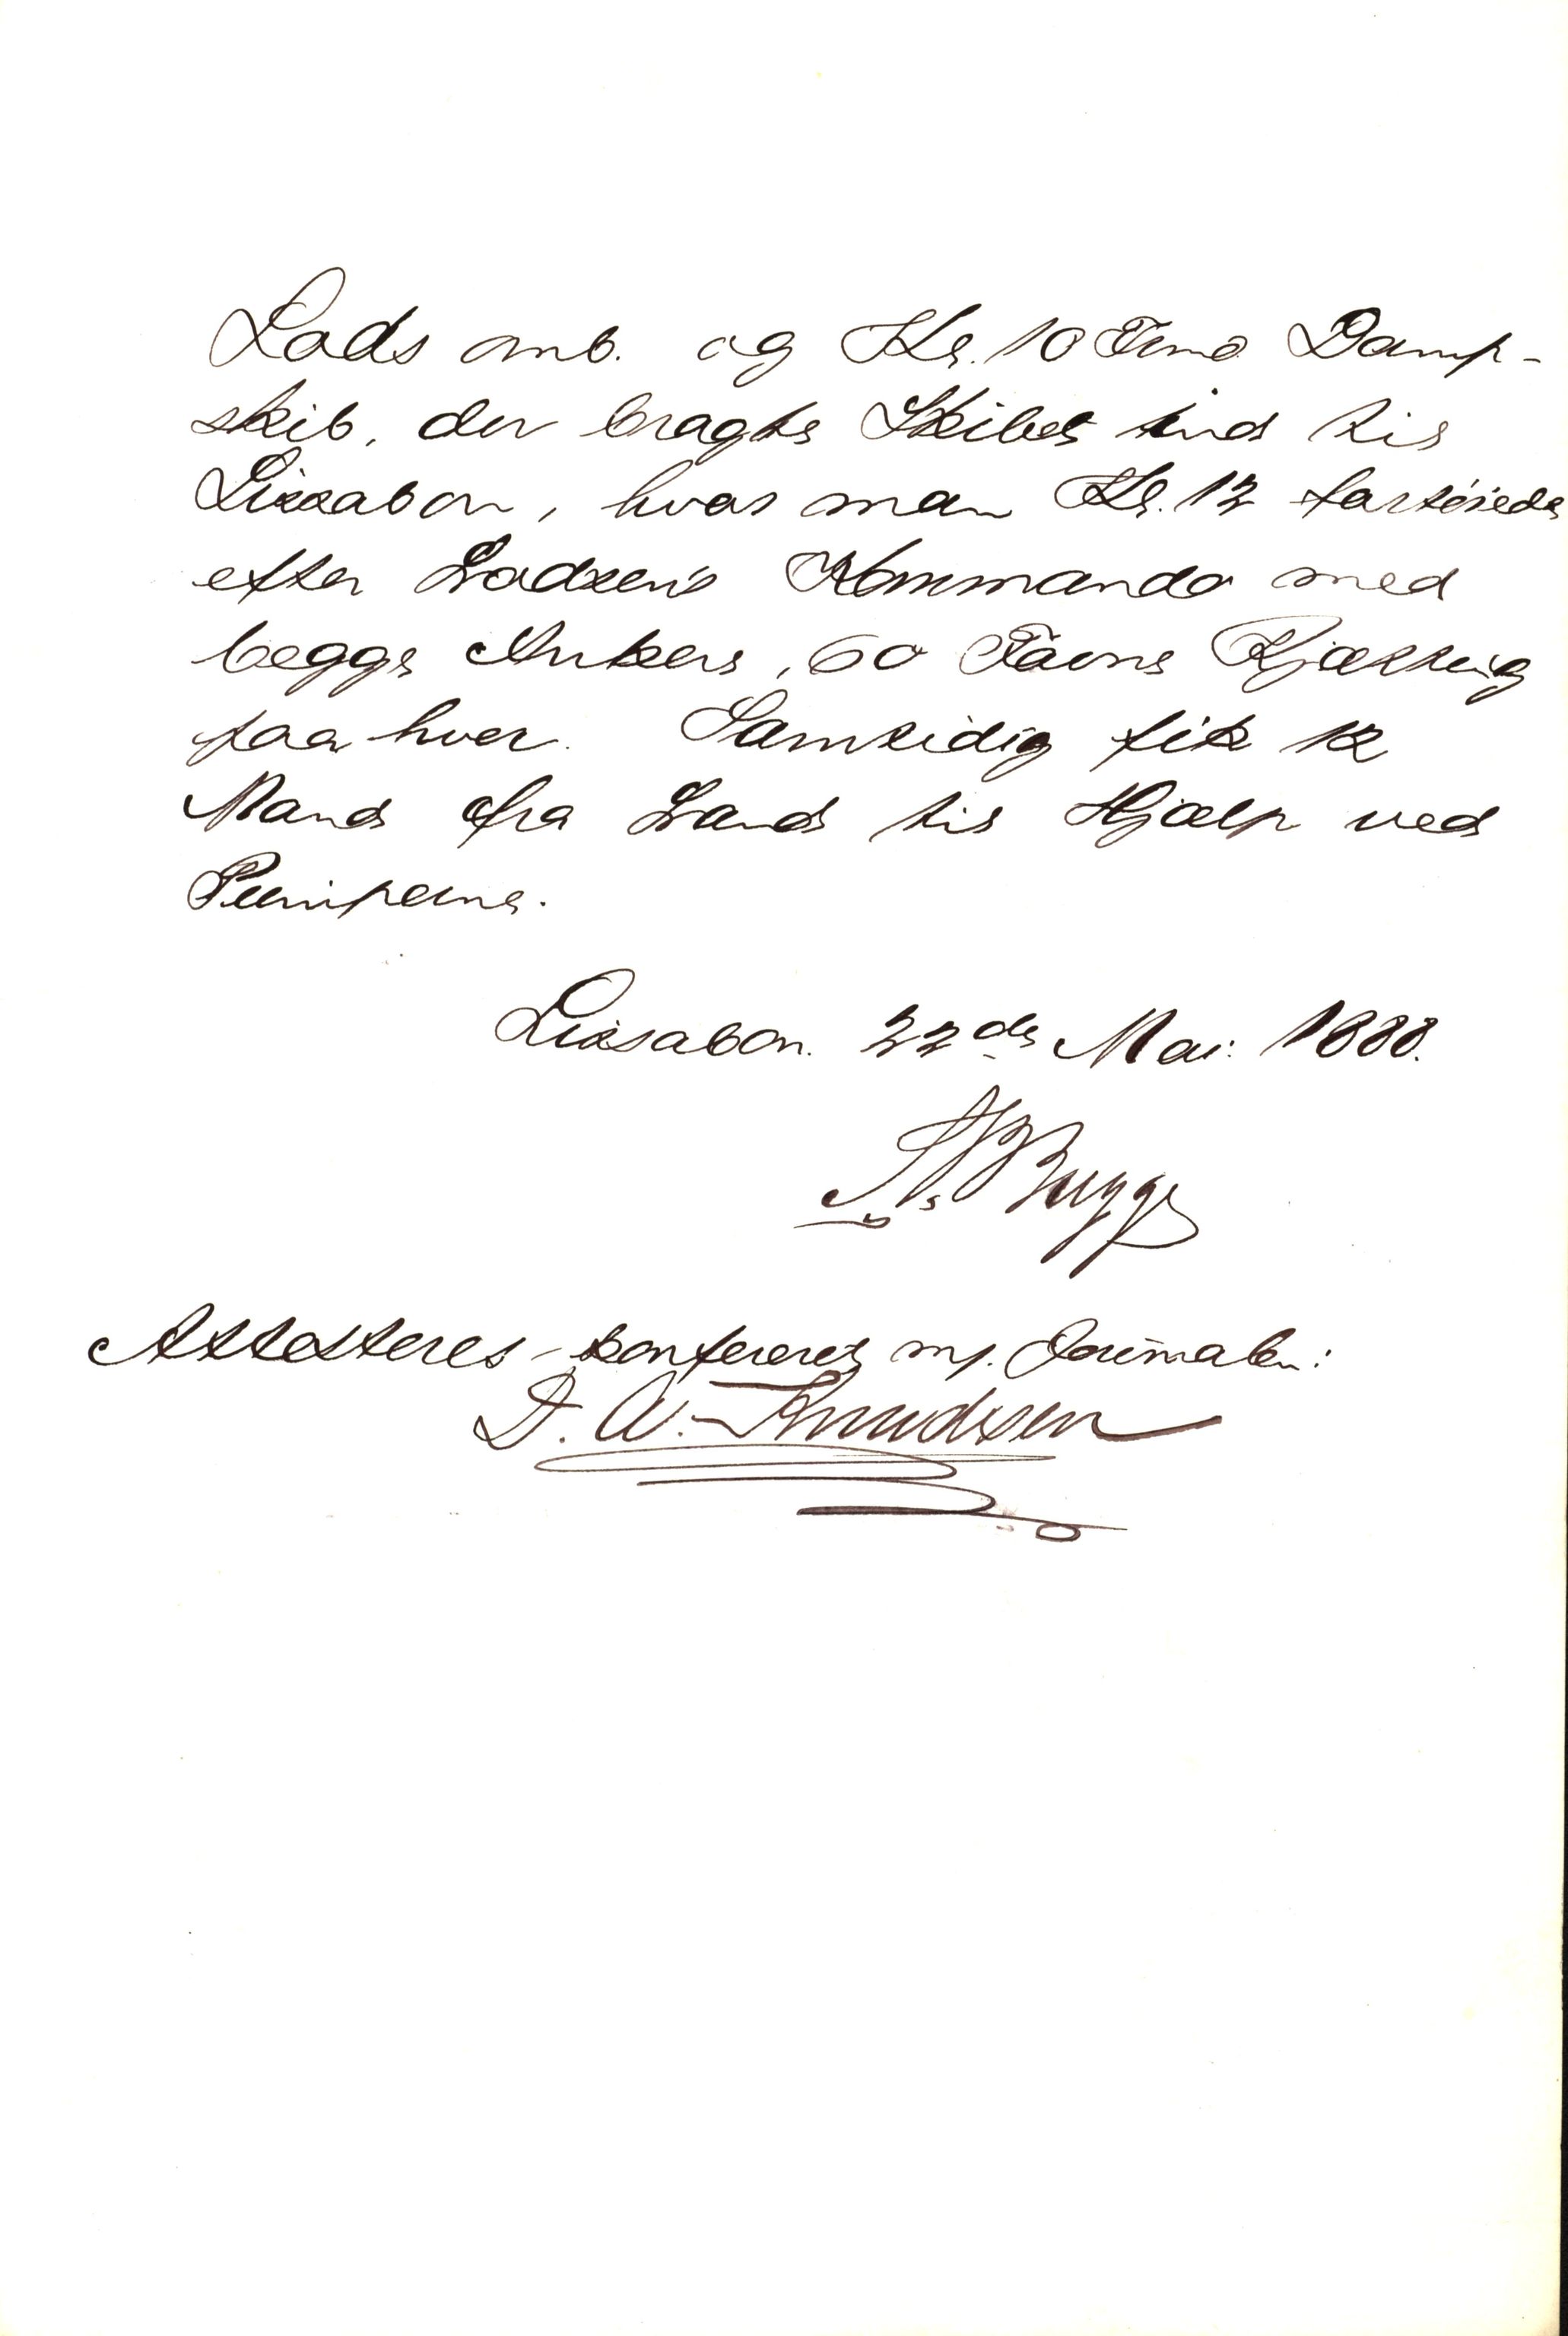 Lods omb. og Kl. 10 Fmd Damp-
skib, der bragte Skibet ind til
Lissabon, hvor man Kl. 12 fortøiede
efter Lodsens Kommando med
begge Ankere, 60 Favne Kjætting
paa hver. Samtidig fik 12
Mand fra Land til Hjælp ved
Pumperne.
Lissabon. 22de Mai. 1888.
Bugge
Attesteres – konfereret m/. Journalen:
D. A. Knudsen